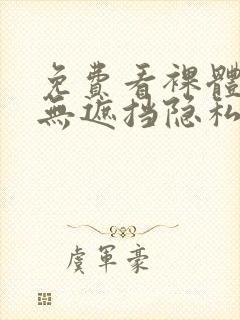 免費看裸體
無遮挡隐私
虞軍豪